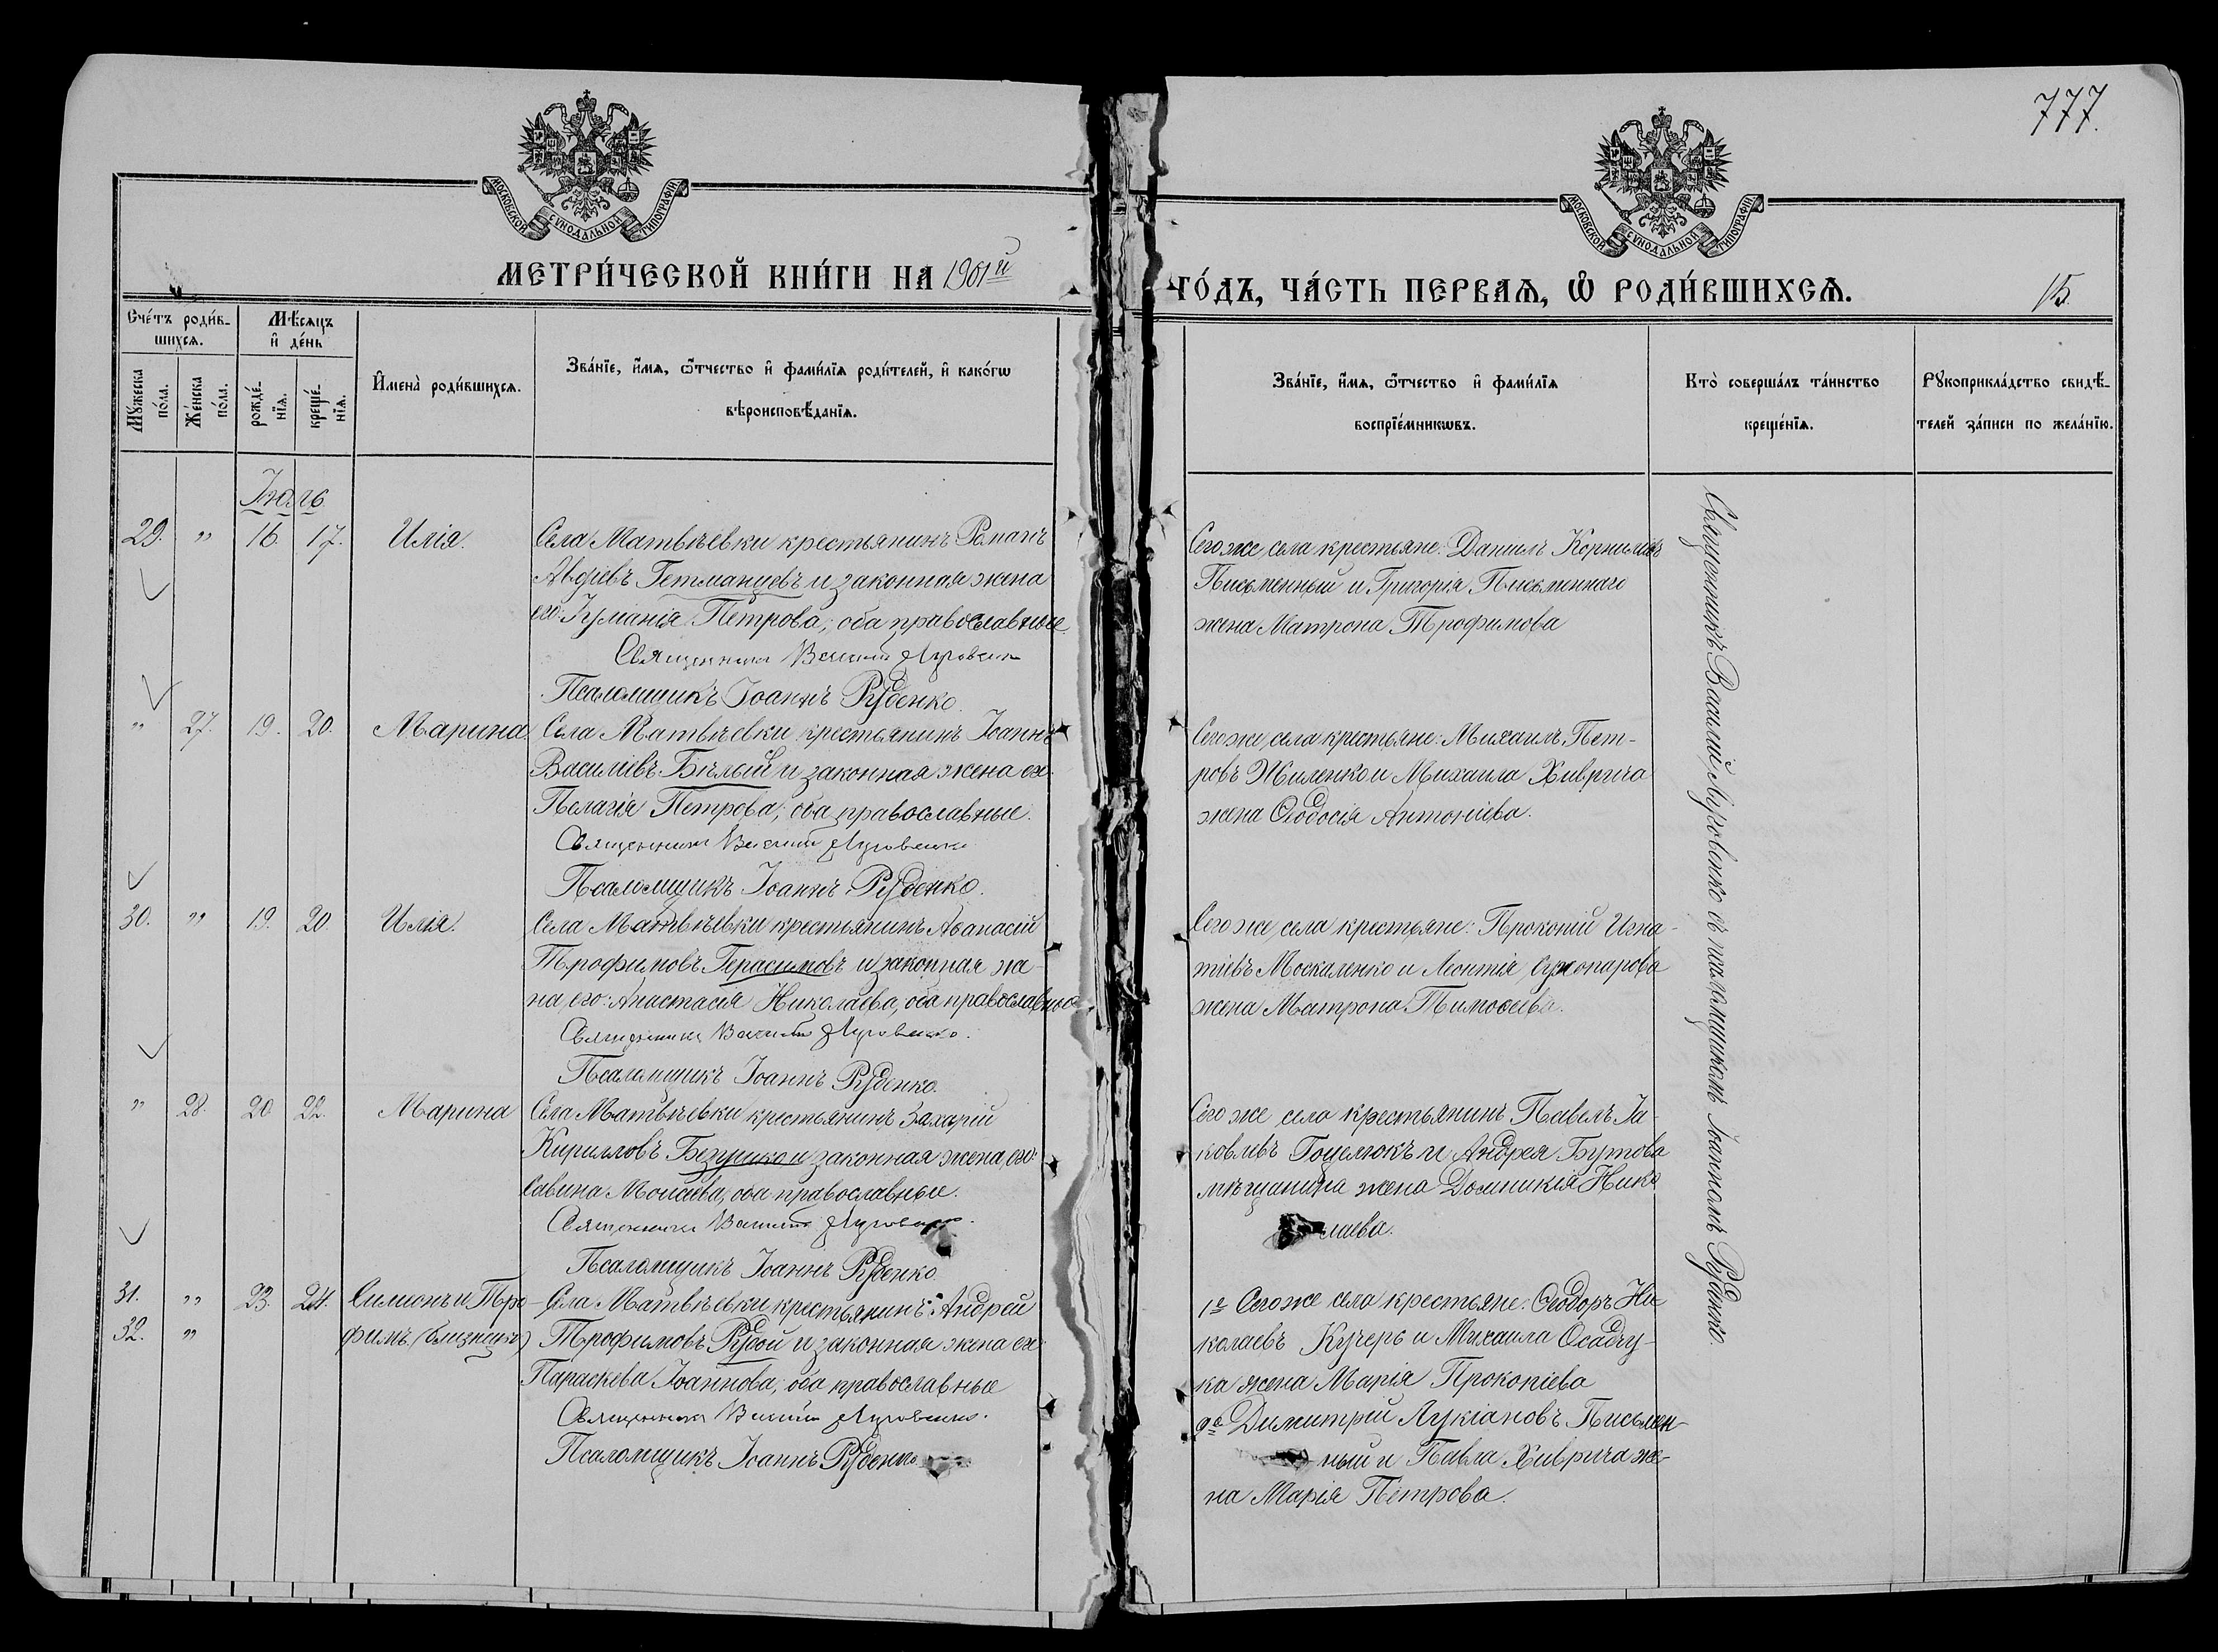 777.
МОСКОВСКОЙ СѴНОДАЛЬНОЙ ТИПОГРАФІИ
МОСКОВСКОЙ СѴНОДАЛЬНОЙ ТИПОГРАФІИ
МЕТРИ́ЧЕСКОЙ КНИ́ГИ НА 1901й
ГО́ДЪ, ЧА́СТЬ ПЕРВАѦ, Ѡ РОДИ́ВШИХСѦ.
15.
Сче́тъ роди́в-
шихсѧ.
Мꙋ́жеска
по́ла.
Же́нска
по́ла.
Мѣ́сѧцъ
и҆ де́нь
рожде́-
нїѧ.
креще́-
нїѧ.
И҆мена̀ роди́вшихсѧ.
Зва́нїе, и҆́мѧ, ѻ҆́тчество и҆ фами́лїѧ роди́телей, и҆ како́гѡ
вѣроисповѣ́данїѧ.
Зва́нїе, и҆́мѧ, ѻ҆́тчество и҆ фами́лїѧ
воспрїе́мникѡвъ.
Кто̀ соверша́лъ та́инство
креще́нїѧ.
Рꙋкоприкла́дство свидѣ́-
телей за́писи по жела́нїю.
Іюль
29. " 16. 17. Илія.
Села Матвѣевки крестьянинъ Романъ
Авдіевъ Гетманцевъ и законная жена
его: Іуманія Петрова; оба православные
Священникъ Василій Луговенко
Псаломщикъ Іоаннъ Руденко.
Сего же, села крестьяне: Даніилъ Корниліевъ
Письменный и Григорія Письменнаго
жена Матрона Трофимова
" 27. 19. 20. Марина
Села Матвѣевки крестьянинъ Іоаннъ
Василіевъ Бѣлый и законная жена его
Пелагія Петрова; оба православные.
Священникъ Василій Луговенко
Псаломщикъ Іоаннъ Руденко.
Сего же, села крестьяне: Михаилъ Пет-
ровъ Жиленко и Михаила Хиврича
жена Ѳеодосія Антоніева.
30. " 19. 20. Илія.
Села Матвѣевки крестьянинъ Аѳанасій
Трофимовъ Герасимовъ и законная же-
на его: Анастасія Николаева, оба православные
Священникъ Василій Луговенко.
Псаломщикъ Іоаннъ Руденко.
Сего же, села крестьяне: Прокопій Игна-
тіевъ Москаленко и Леонтія
жена Матрона Тимоѳеева.
" 28. 20 22. Марина
Села Матвѣевки крестьянинъ Захарій
Кирилловъ и законная жена его:
Савина Моисеева, оба православные.
Священникъ Василій Луговенко.
Псаломщикъ Іоаннъ Руденко.
Сего же села крестьянинъ Павелъ Іа-
ковлевъ Гоцелюкъ и Андрея Буртова
мѣщанина жена Домникія Нико
лаева.
31. " 23. 24. Симеонъ и Тро-
32. " фимъ. (близнецы)
Села Матвѣевки крестьянинъ: Андрей
Трофимовъ Рудой и законная жена его
Параскева Іоаннова; оба православные
Священникъ Василій Луговенко.
Псаломщикъ Іоаннъ Руденко
1е Сего же села крестьяне: Ѳеодоръ Ни
колаевъ Кучеръ и Михаила Осадчу-
ка жена Марія Прокопіева
2е Димитрій Лукіановъ Письмен-
ный и Павла Хиврича же-
на Марія Петрова.
Священникъ Василій Луговенко съ псаломщикомъ Іоанномъ Руденко.